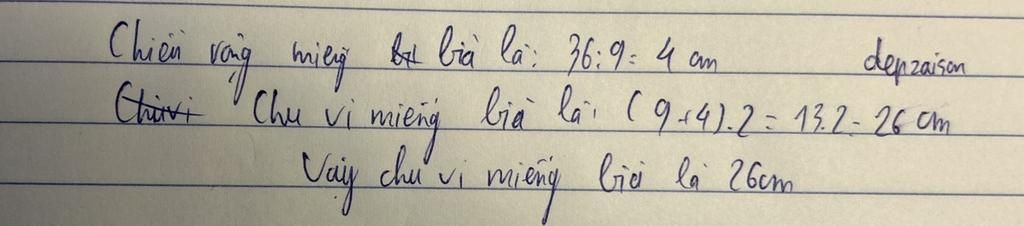 Chiều rộng miếng bìa là: 36:9 = 4 cm depzaison
Chu vi miếng bìa là: (9+4).2 = 13.2 = 26 cm
Vậy chu vi miếng bìa là 26cm